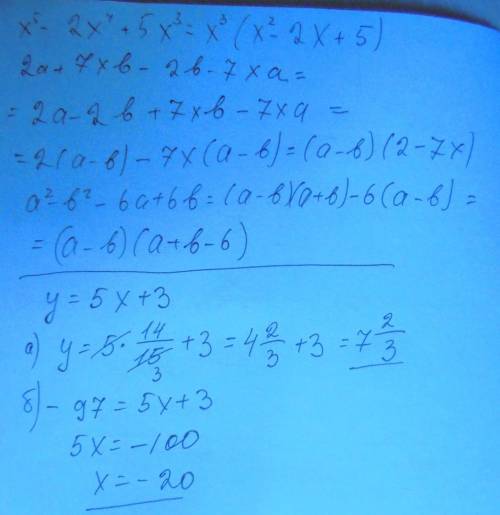 x⁵ - 2x⁴ + 5x³ = x³(x² - 2x + 5)
2a + 7xb - 2b - 7xa =
= 2a - 2b + 7xb - 7xa =
= 2(a - b) - 7x(a - b) = (a - b)(2 - 7x)
a² - b² - 6a + 6b = (a - b)(a + b) - 6(a - b) =
= (a - b)(a + b - 6)
y = 5x + 3
а) y = 5 · 14/15 3 + 3 = 4 2/3 + 3 = 7 2/3
б) - 97 = 5x + 3
5x = -100
x = -20